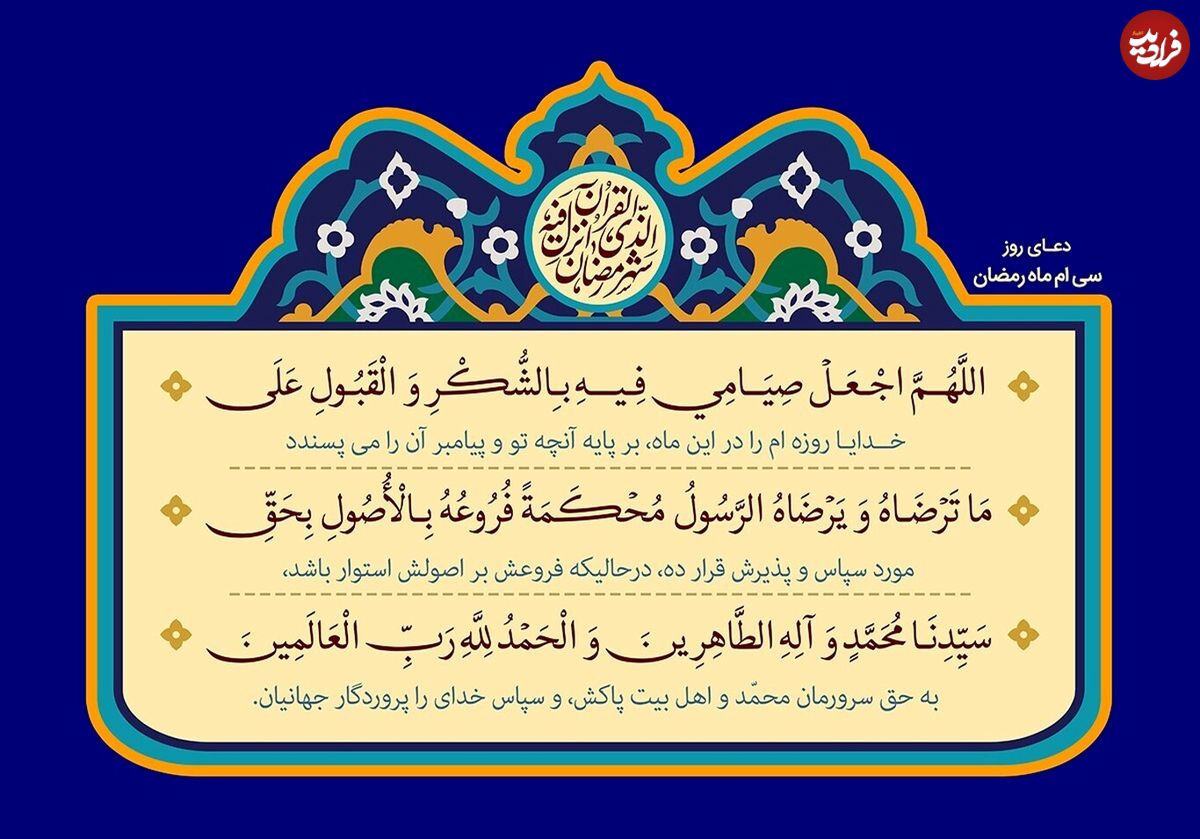 فرادید
شهر رمضان
الذی انزل فیه
القرآن
دعـای روز
سی ام ماه رمضان
اللَّهُمَّ اجْعَلْ صِيَامِي فِيهِ بِالشُّكْرِ وَ الْقَبُولِ عَلَى
خدایا روزه ام را در این ماه، بر پایه آنچه تو و پیامبر آن را می پسندد
مَا تَرْضَاهُ وَ يَرْضَاهُ الرَّسُولُ مُحْكَمَةً فُرُوعُهُ بِالْأُصُولِ بِحَقِّ
مورد سپاس و پذیرش قرار ده، درحالیکه فروعش بر اصولش استوار باشد،
سَيِّدِنَا مُحَمَّدٍ وَ آلِهِ الطَّاهِرِينَ وَ الْحَمْدُ لِلَّهِ رَبِّ الْعَالَمِينَ
به حق سرورمان محمّد و اهل بیت پاکش، و سپاس خدای را پروردگار جهانیان.